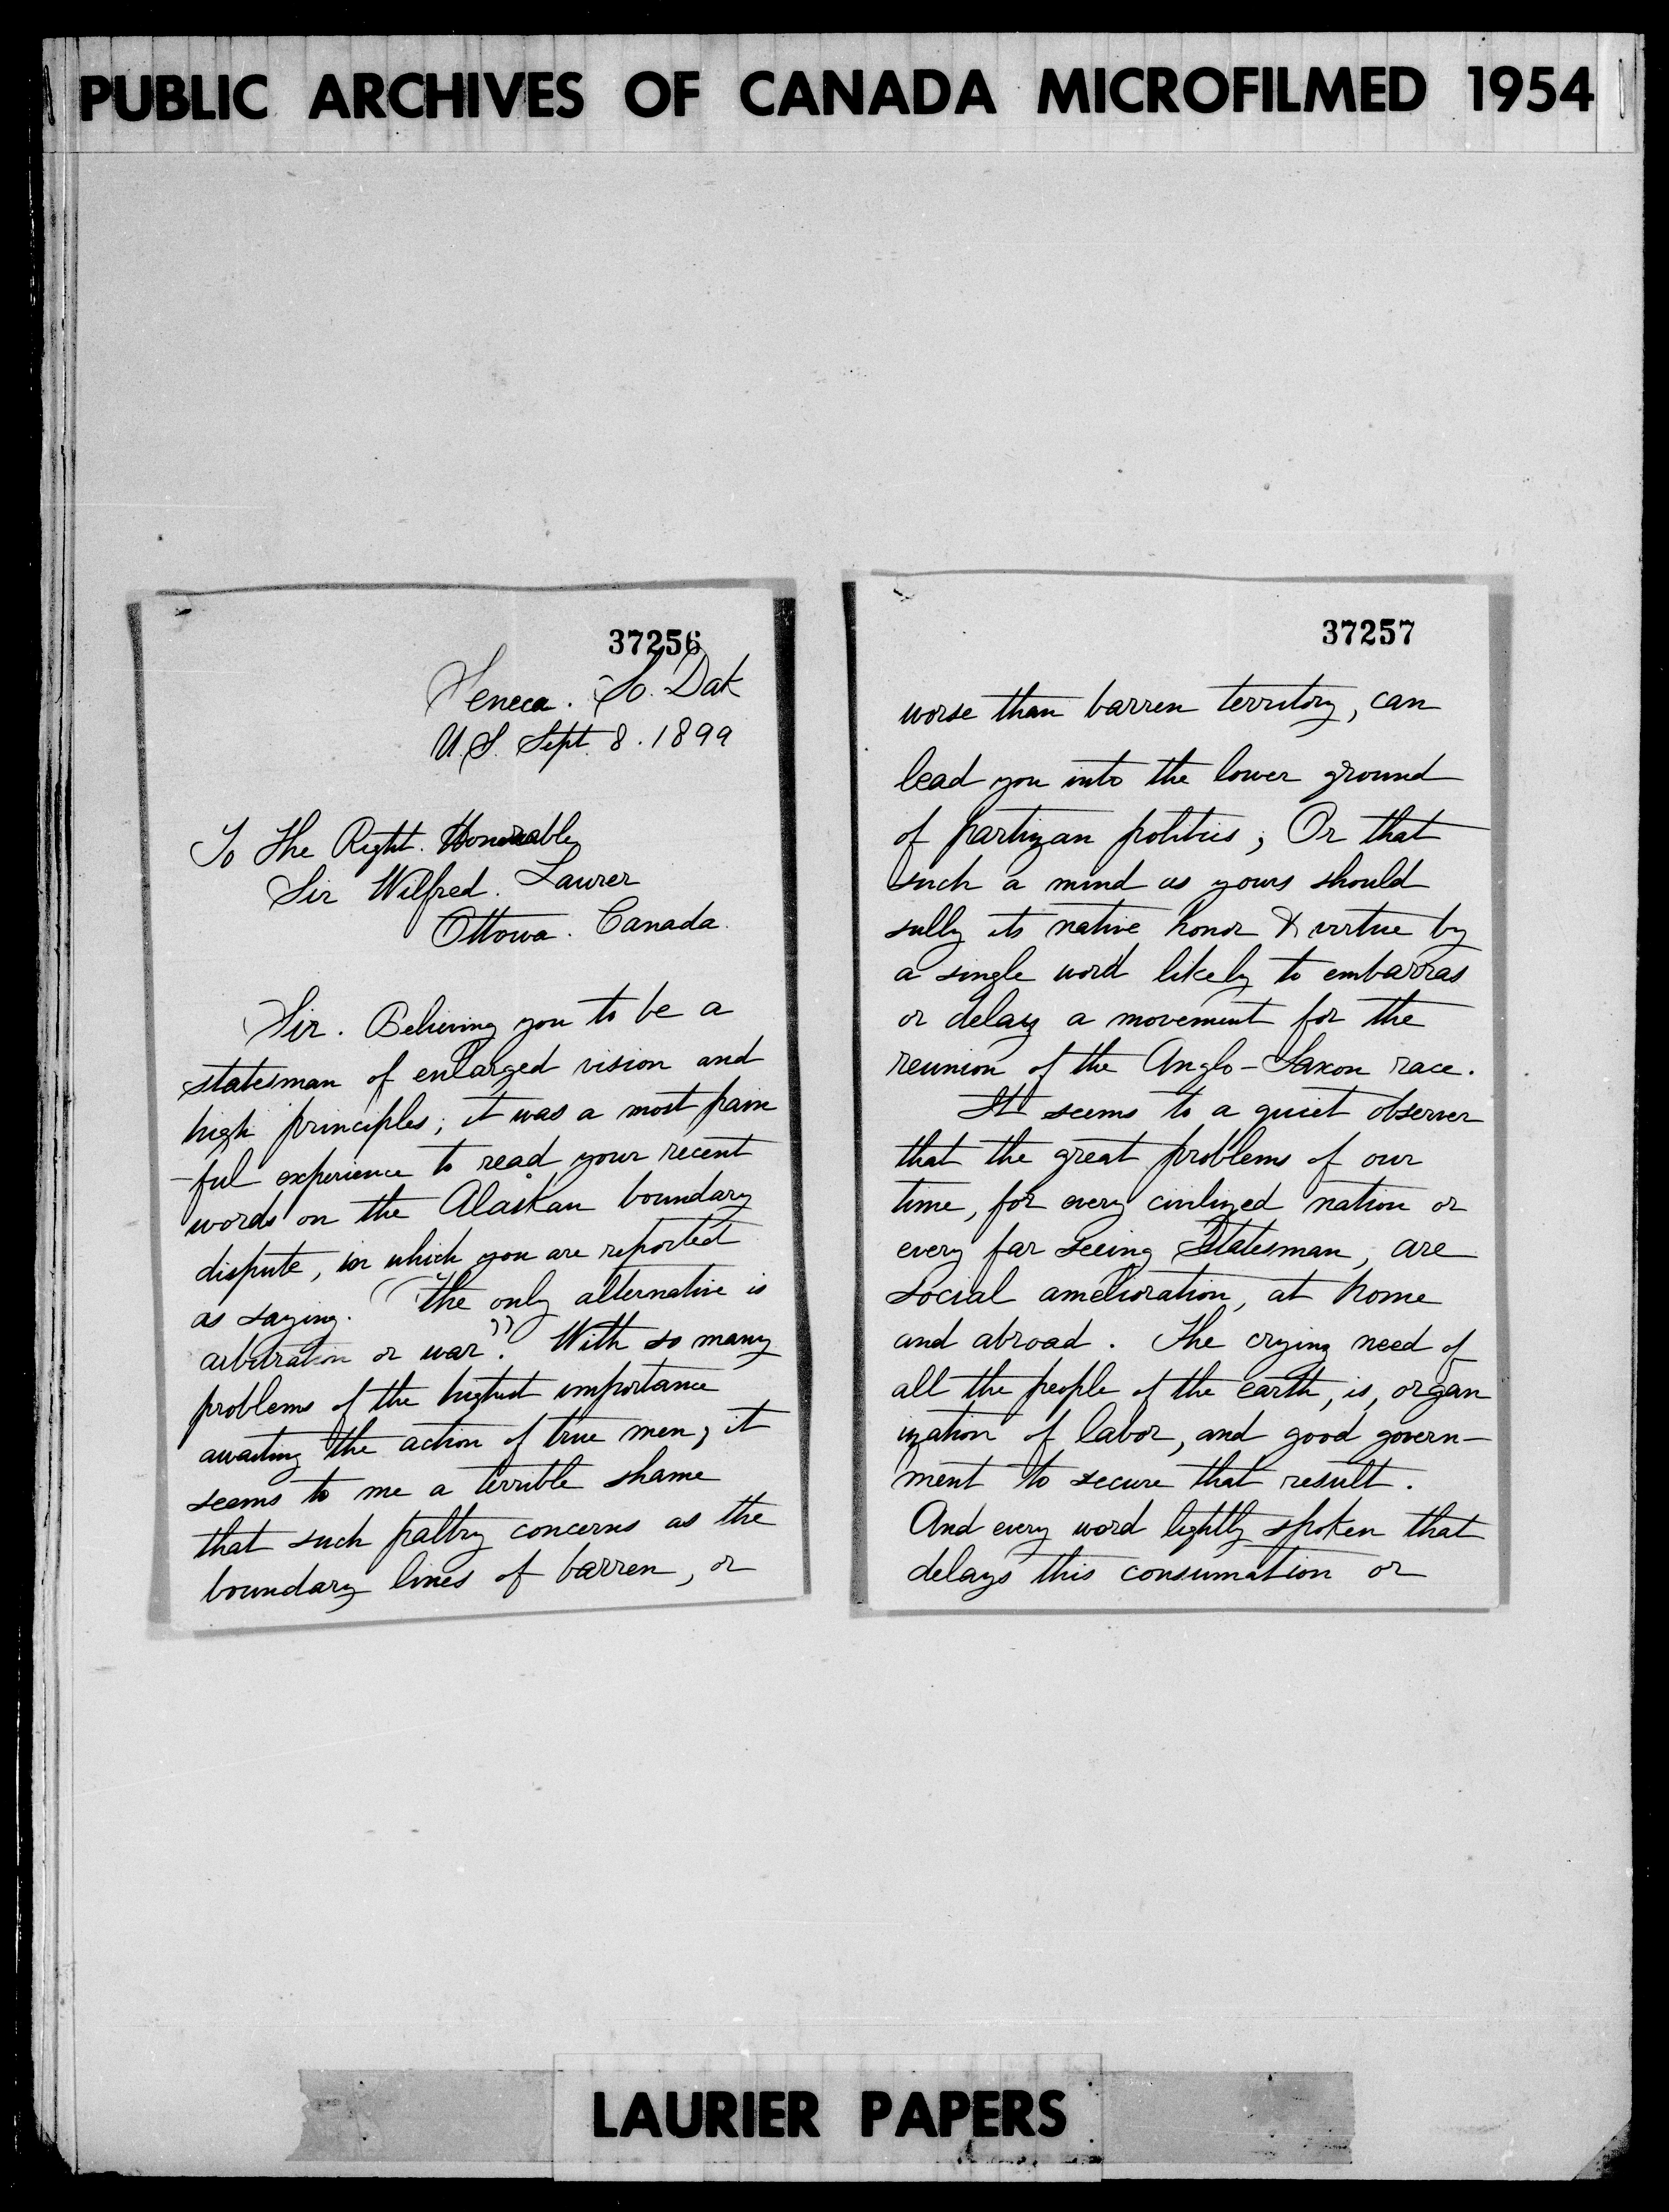 PUBLIC ARCHIVES OF CANADA MICROFILMED 1954
37256
Seneca. So. Dak
U.S. Sept. 8. 1899
To The Right. Honorable
Sir Wilfred. Laurer
Ottowa. Canada.
Sir. Believing you to be a
statesman of enlarged vision and
high principles; it was a most pain
-ful experience to read your recent
words on the Alaskan boundary
dispute, in which you are reported
as saying. "The only alternative is
arbitration or war". With so many
problems of the highest importance
awaiting the action of true men; it
seems to me a terrible shame
that such paltry concerns as the
boundary lines of barren, or
37257
worse than barren territory, can
lead you into the lower ground
of partizan politics; Or that
such a mind as yours should
sully its native honor & virtue by
a single word likely to embarras
or delay a movement for the
reunion of the Anglo-Saxon race.
It seems to a quiet observer
that the great problems of our
time, for every civilized nation or
every far seeing Statesman, are
social amelioration, at home
and abroad. The crying need of
all the people of the earth, is, organ
ization of labor, and good govern-
ment to secure that result.
And every word lightly spoken that
delays this consumation or
LAURIER PAPERS